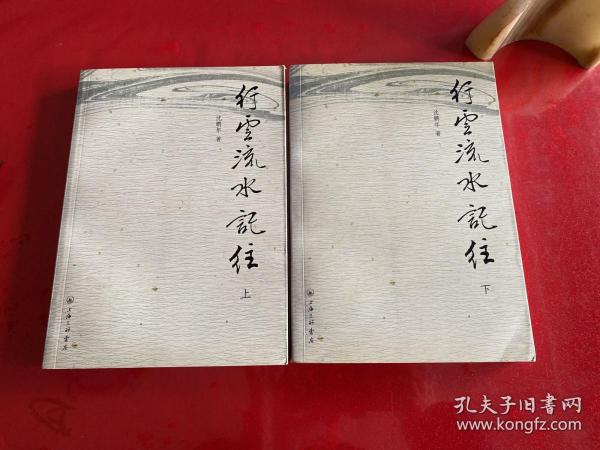 行雲流水記往
沈鹏年 著
上
上海三联书店
行雲流水記往
沈鹏年 著
下
上海三联书店
孔夫子旧书网
www.kongfz.com